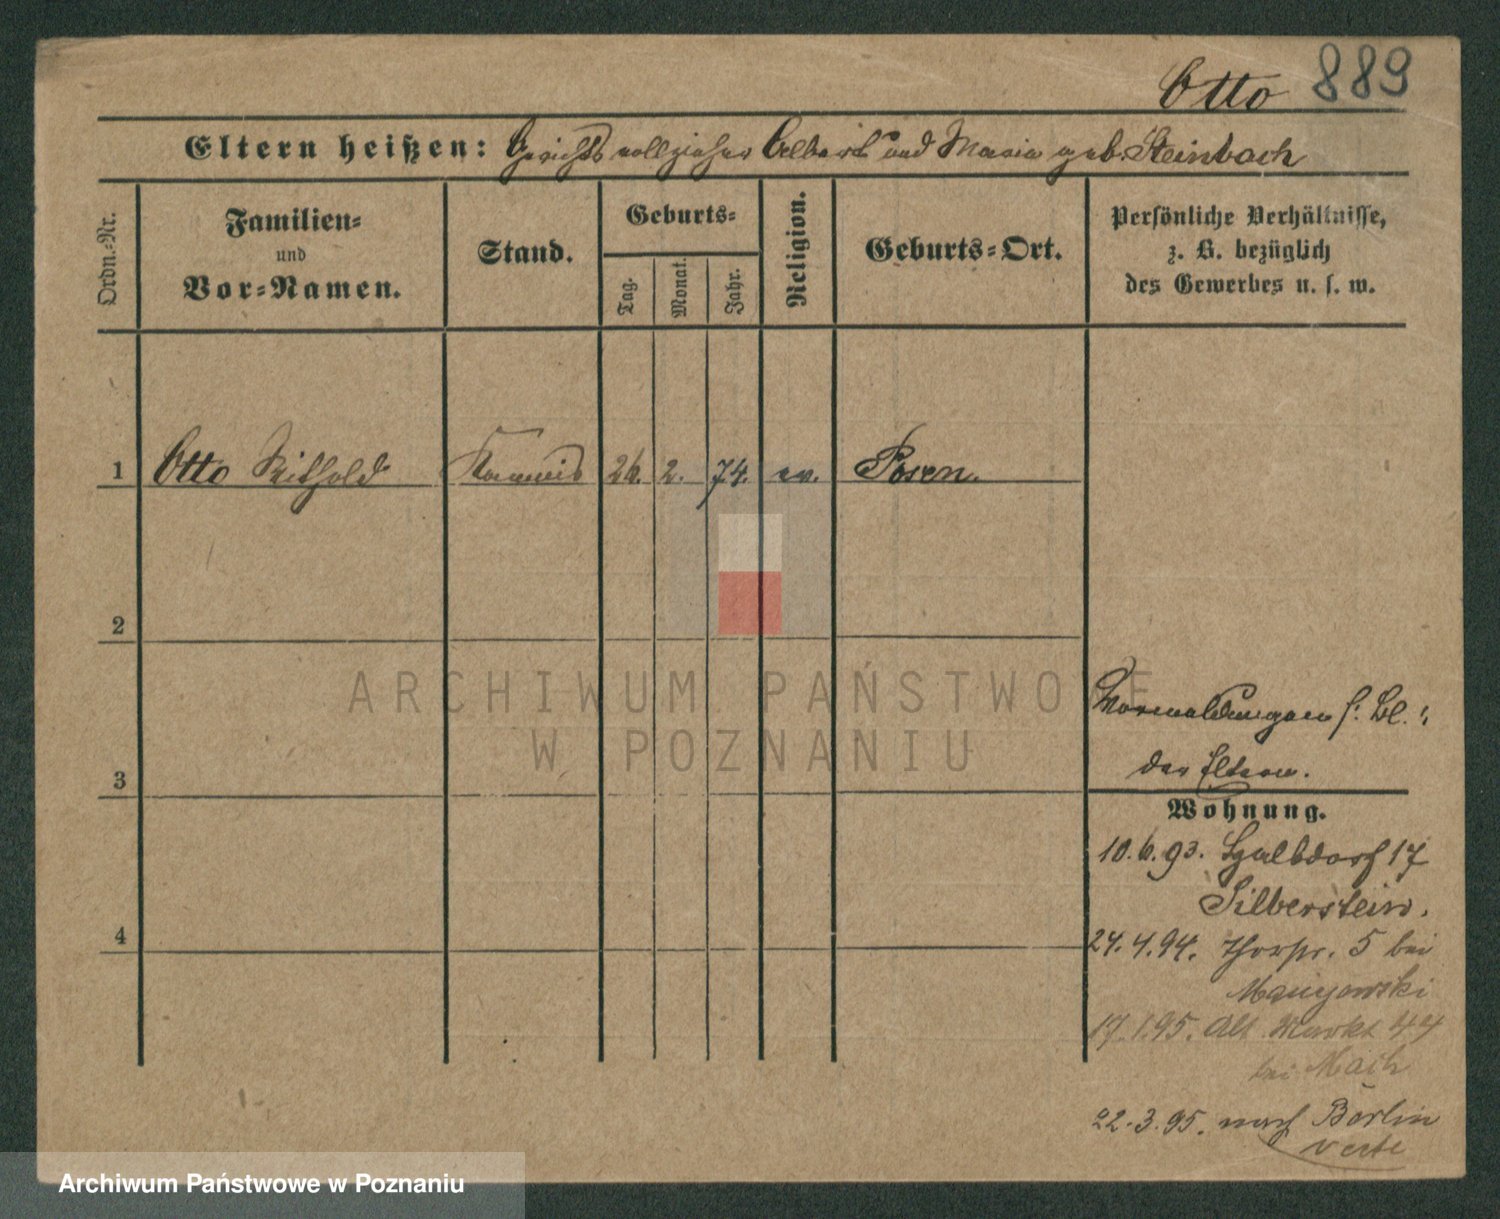 Otto 889
Eltern heißen: Gerichtsvollzieher Albert und Maria geb. Steinbach
Ordn.-Nr.
Familien-
und
Vor-Namen.
Stand.
Geburts-
Tag.
Monat.
Jahr.
Religion.
Geburts-Ort.
Persönliche Verhältnisse,
z. B. bezüglich
des Gewerbes u. s. w.
1 Otto Kommis 26. 2. 74. ev. Posen.
2
ARCHIWUM PAŃSTWOWE
W POZNANIU
der Eltern.
3
Wohnung.
10.6.93. Halbdorf 17
Silberstein.
4
24.4.94. 5 bei
17.1.95. Alt. Markt 44
bei
22.3.95. nach Berlin
verte
Archiwum Państwowe w Poznaniu